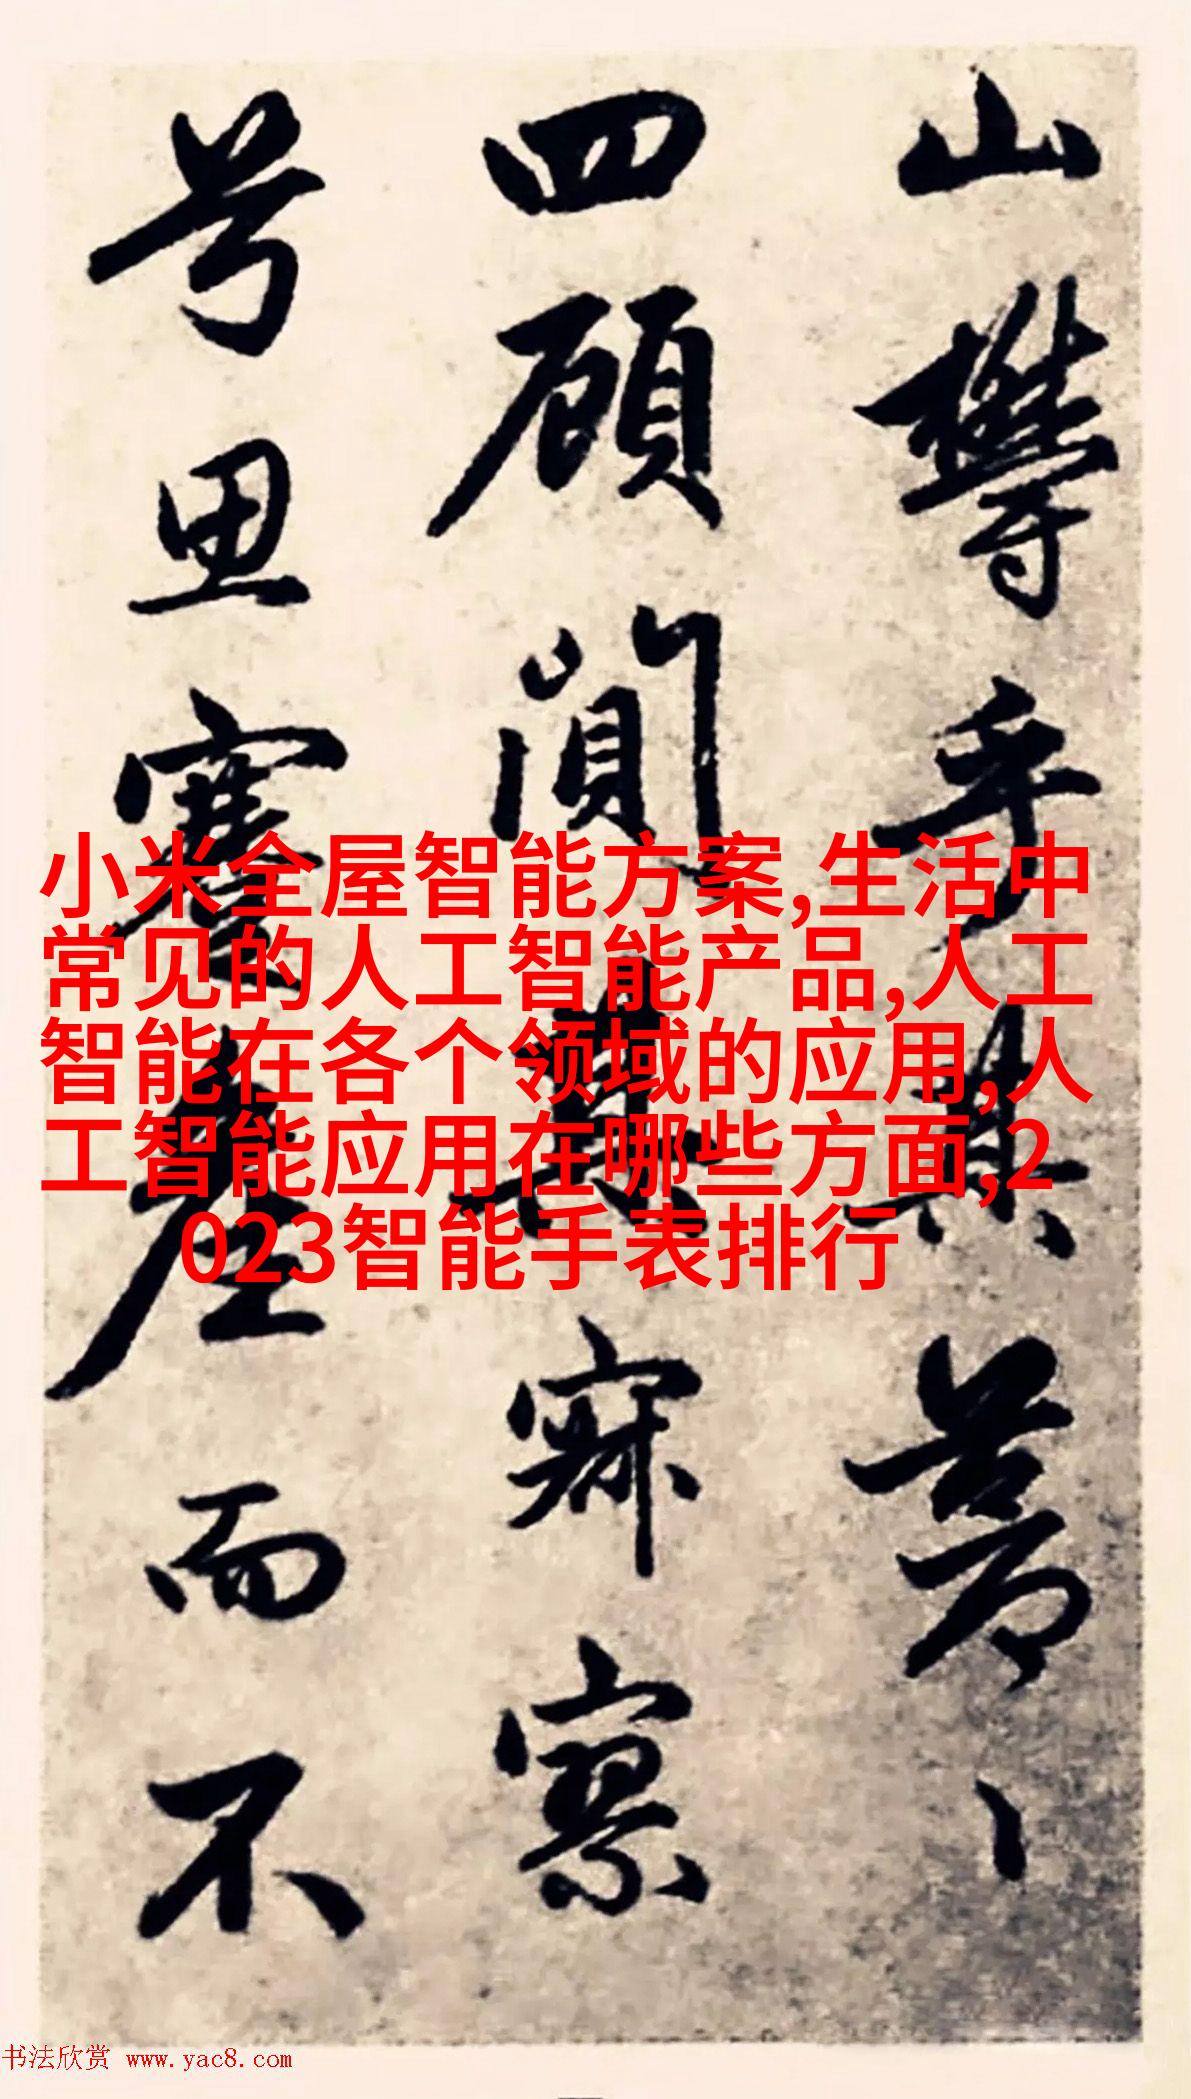 山欝乎其蒼〻
四顧闃其寂寥
兮思蹇產而不
小米全屋智能方案,生活中
常见的人工智能产品,人工
智能在各个领域的应用,人
工智能应用在哪些方面,2
023智能手表排行
书法欣赏 www.yac8.com